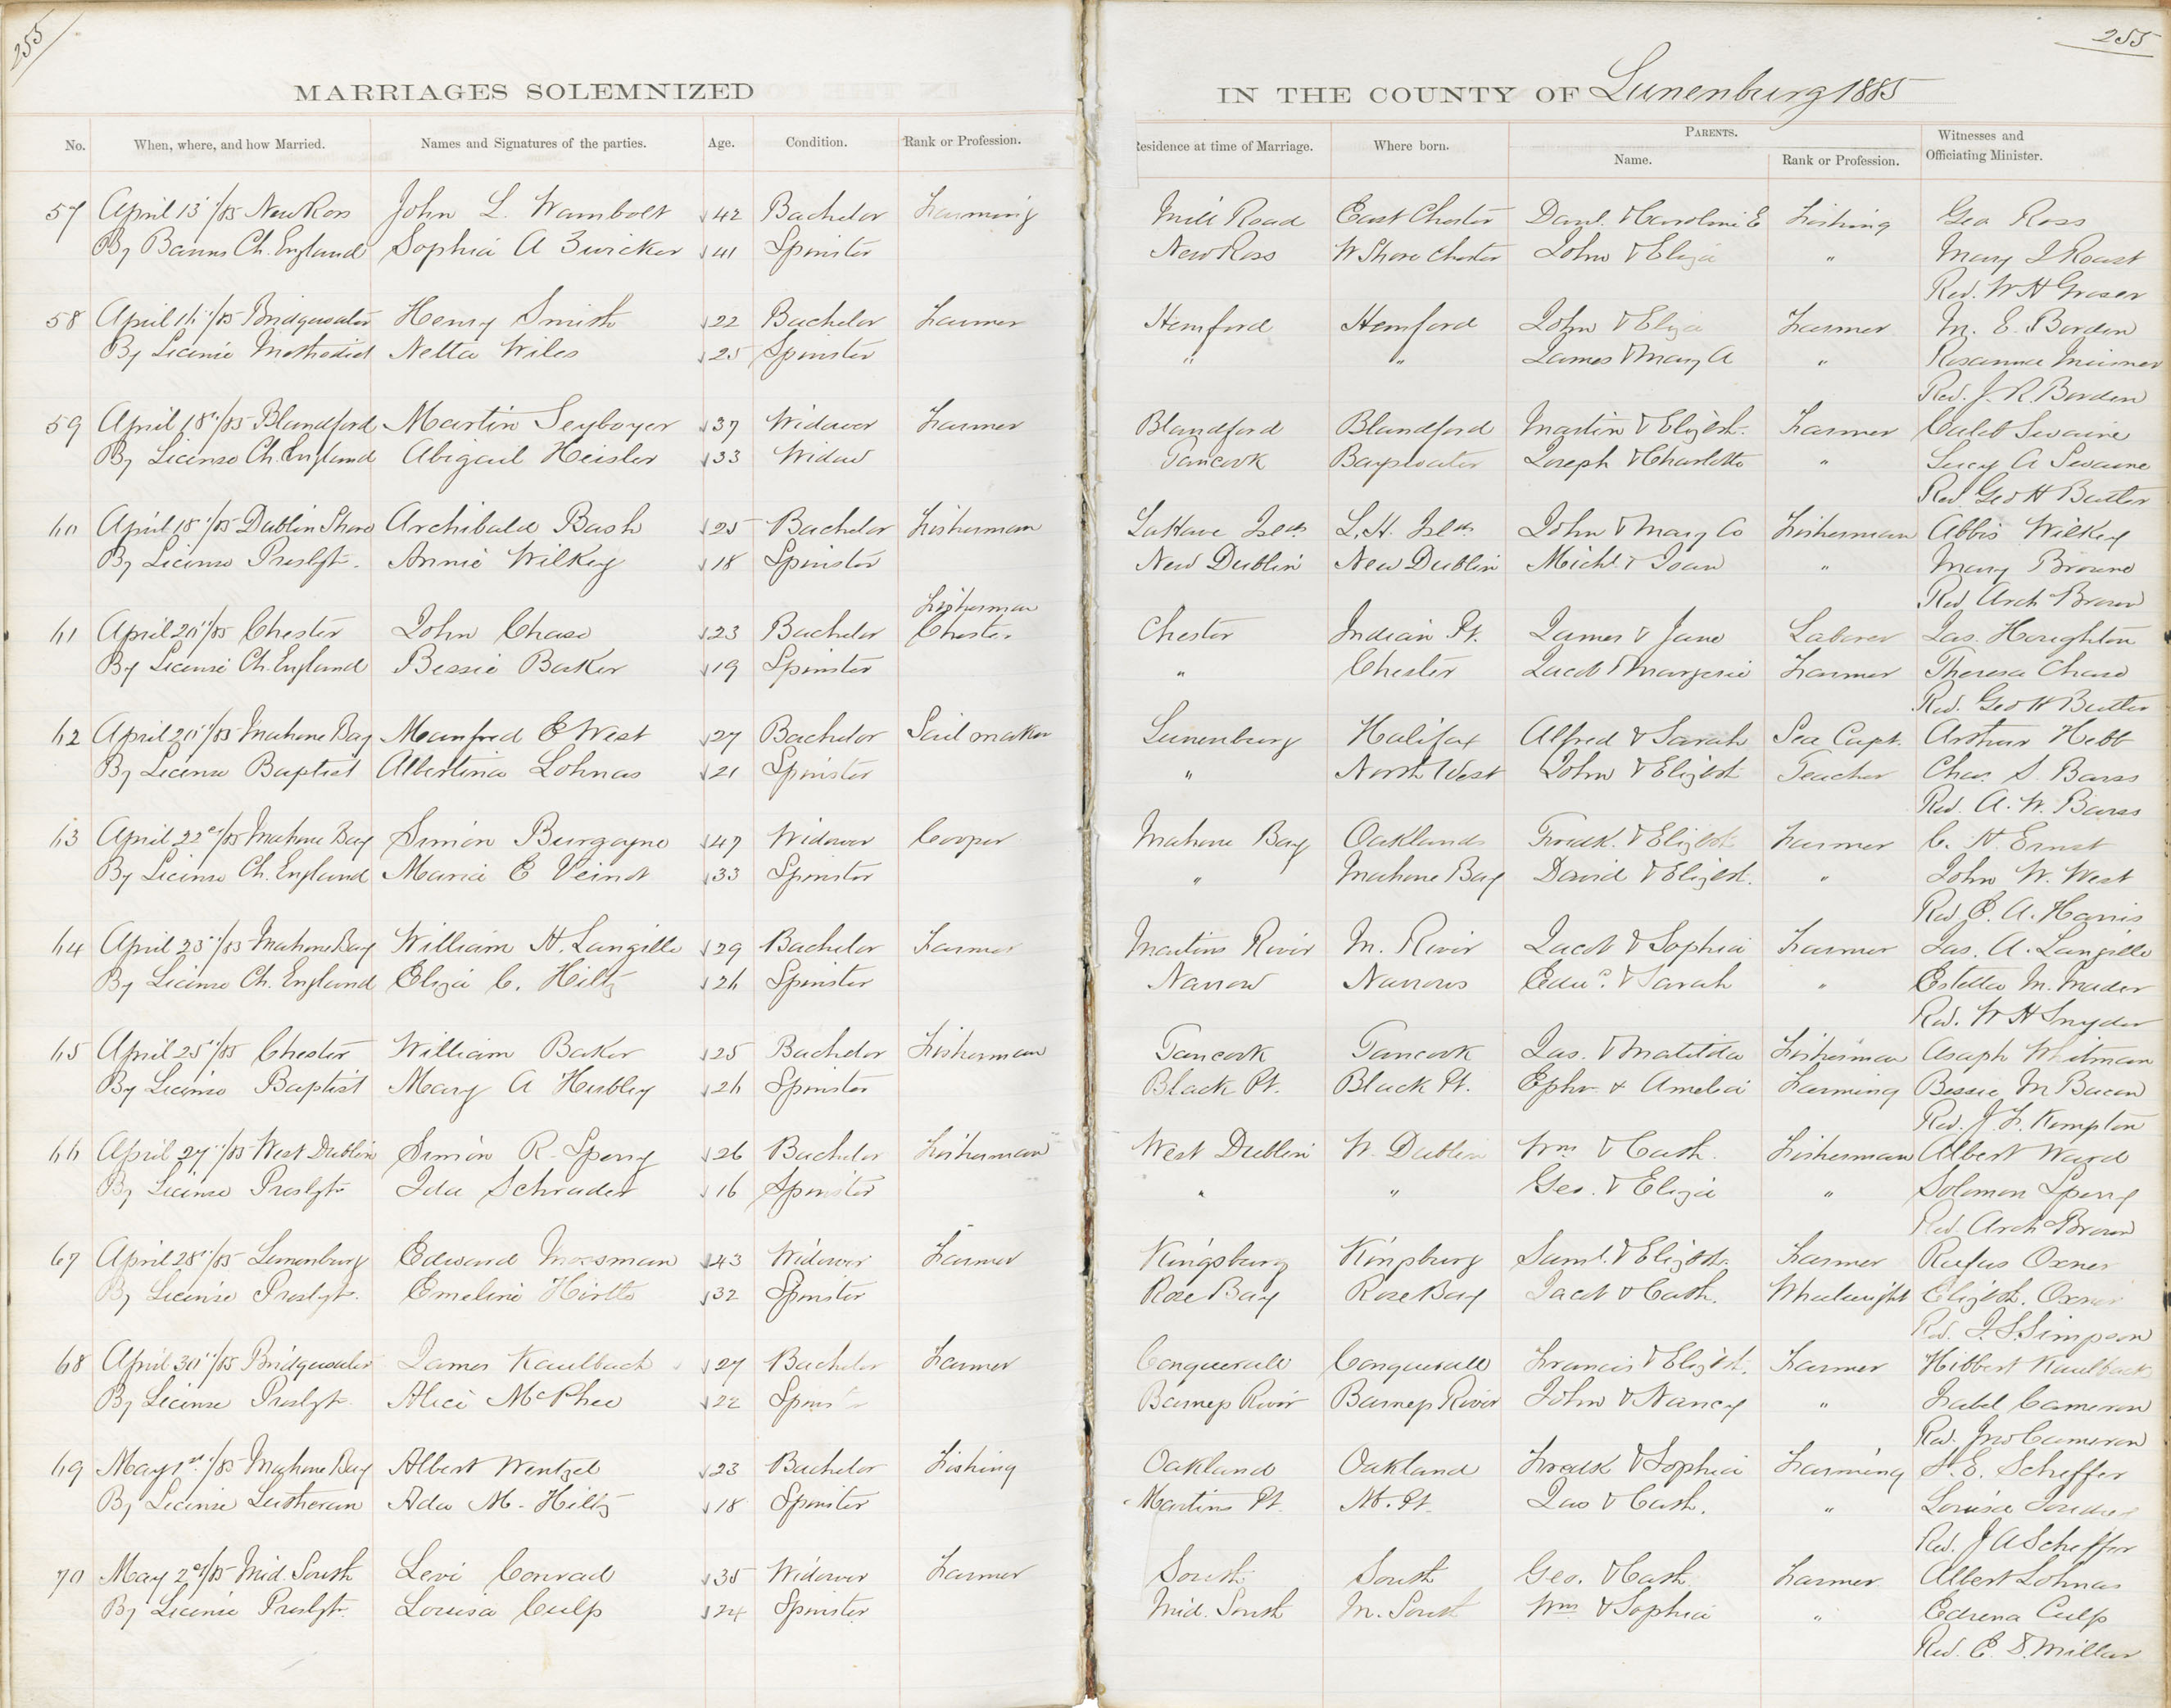 255
255
MARRIAGES SOLEMNIZED
IN THE COUNTY OF Lunenburg 1885
No. When, where, and how Married. Names and Signatures of the parties. Age. Condition. Rank or Profession. Residence at time of Marriage. Where born. PARENTS. Name. Rank or Profession. Witnesses and Officiating Minister.
57 April 13"/85 New Ross John L. Wambolt 42 Bachelor Farming Mill Road East Chester Danl. & Caroline E Fishing Geo Ross
By Banns Ch. England Sophia A Zwicker 41 Spinster New Ross W Shore Chester John & Eliza " Mary J Roast
Rev. W H Groser
58 April 16"/85 Bridgewater Henry Smith 22 Bachelor Farmer Hemford Hemford John & Eliza Farmer M. E. Borden
By License Methodist Netta Wiles 25 Spinster " " James & Mary A " Rosanna
Rev. J. R. Borden
59 April 18"/85 Blandford Martin Seyboyer 37 Widower Farmer Blandford Blandford Martin & Elizbth. Farmer Caleb Swaine
By License Ch. England Abigail Heisler 33 Widow Tancook Bayswater Joseph & Charlotte " Lucy A Swaine
Rev Geo H Butler
60 April 18"/85 Dublin Shore Archibald Bash 25 Bachelor Fisherman LaHave Isds. L. H. Isds. John & Mary Co Fisherman Abbie Wilkey
By License Presbyt. Annie Wilkey 18 Spinster New Dublin New Dublin Michl. & Joan " Mary Browne
Rev Arch Brown
Fisherman
61 April 20"/85 Chester John Chase 23 Bachelor Chester Chester Indian Pt. James & Jane Laborer Jas. Houghton
By License Ch. England Bessie Baker 19 Spinster " Chester Jacob & Margerie Farmer Theresa Chase
Rev. Geo H Butler
62 April 20"/85 Mahone Bay Manfred E West 27 Bachelor Sail maker Lunenburg Halifax Alfred & Sarah Sea Capt. Arthur Hebb
By License Baptist Albertina Lohnas 21 Spinster " North West John & Elizbth Teacher Chas. S. Barss
Rev. A. W. Barss
63 April 22d/85 Mahone Bay Simon Burgoyne 47 Widower Cooper Mahone Bay Oakland Fredk. & Elizbth Farmer C. H. Ernst
By License Ch. England Maria E Veinot 33 Spinster " Mahone Bay David & Elizbth. " John W. West
Rev E. A. Harris
64 April 23"/85 Mahone Bay William H. Langille 29 Bachelor Farmer Martins River M. River Jacob & Sophia Farmer Jas. A. Langille
By License Ch. England Eliza C. Hiltz 26 Spinster Narrow Narrows Edwd. & Sarah " Estella M. Mader
Rev. W H Snyder
65 April 25"/85 Chester William Baker 25 Bachelor Fisherman Tancook Tancook Jas. & Matilda Fisherman Asaph Whitman
By License Baptist Mary A Hubley 26 Spinster Black Pt. Black Pt. Ephr. & Amelia Farming Bessie M Bacon
Rev. J. F. Kempton
66 April 27"/85 West Dublin Simon R. Sperry 26 Bachelor Fisherman West Dublin W. Dublin Wm & Cath. Fisherman Albert Ward
By License Presbyt. Ida Schrader 16 Spinster " " Geo. & Eliza " Solomon Sperry
Rev. Arch Brown
67 April 28"/85 Lunenburg Edward Mossman 43 Widower Farmer Kingsburg Kingsburg Saml. & Elizbth. Farmer Rufus Oxner
By License Presbyt. Emeline Hirtle 32 Spinster Rose Bay Rose Bay Jacob & Cath. Wheelwright Elizbth. Oxner
Rev. J. S. Simpson
68 April 30"/85 Bridgewater James Kaulbach 27 Bachelor Farmer Conquerall Conquerall Francis & Elizbth. Farmer Hibbert Kaulback
By License Presbyt. Alice McPhee 22 Spins Barneys River Barneys River John & Nancy " Isabel Cameron
Rev. Jno Cameron
69 May 1st/85 Mahone Bay Albert Wentzel 23 Bachelor Fishing Oakland Oakland Fredk & Sophia Farming S. E. Scheffer
By License Lutheran Ada M. Hiltz 18 Spinster Martins Pt. M. Pt. Jas & Cath. " Louisa
Rev. J A Scheffer
70 May 2d/85 Mid. South Levi Conrad 35 Widower Farmer South South Geo. & Cath Farmer Albert Lohnas
By License Presbyt. Louisa Culp 24 Spinster Mid. South M. South Wm & Sophia " Edrena Culp
Rev. E. D. Millar